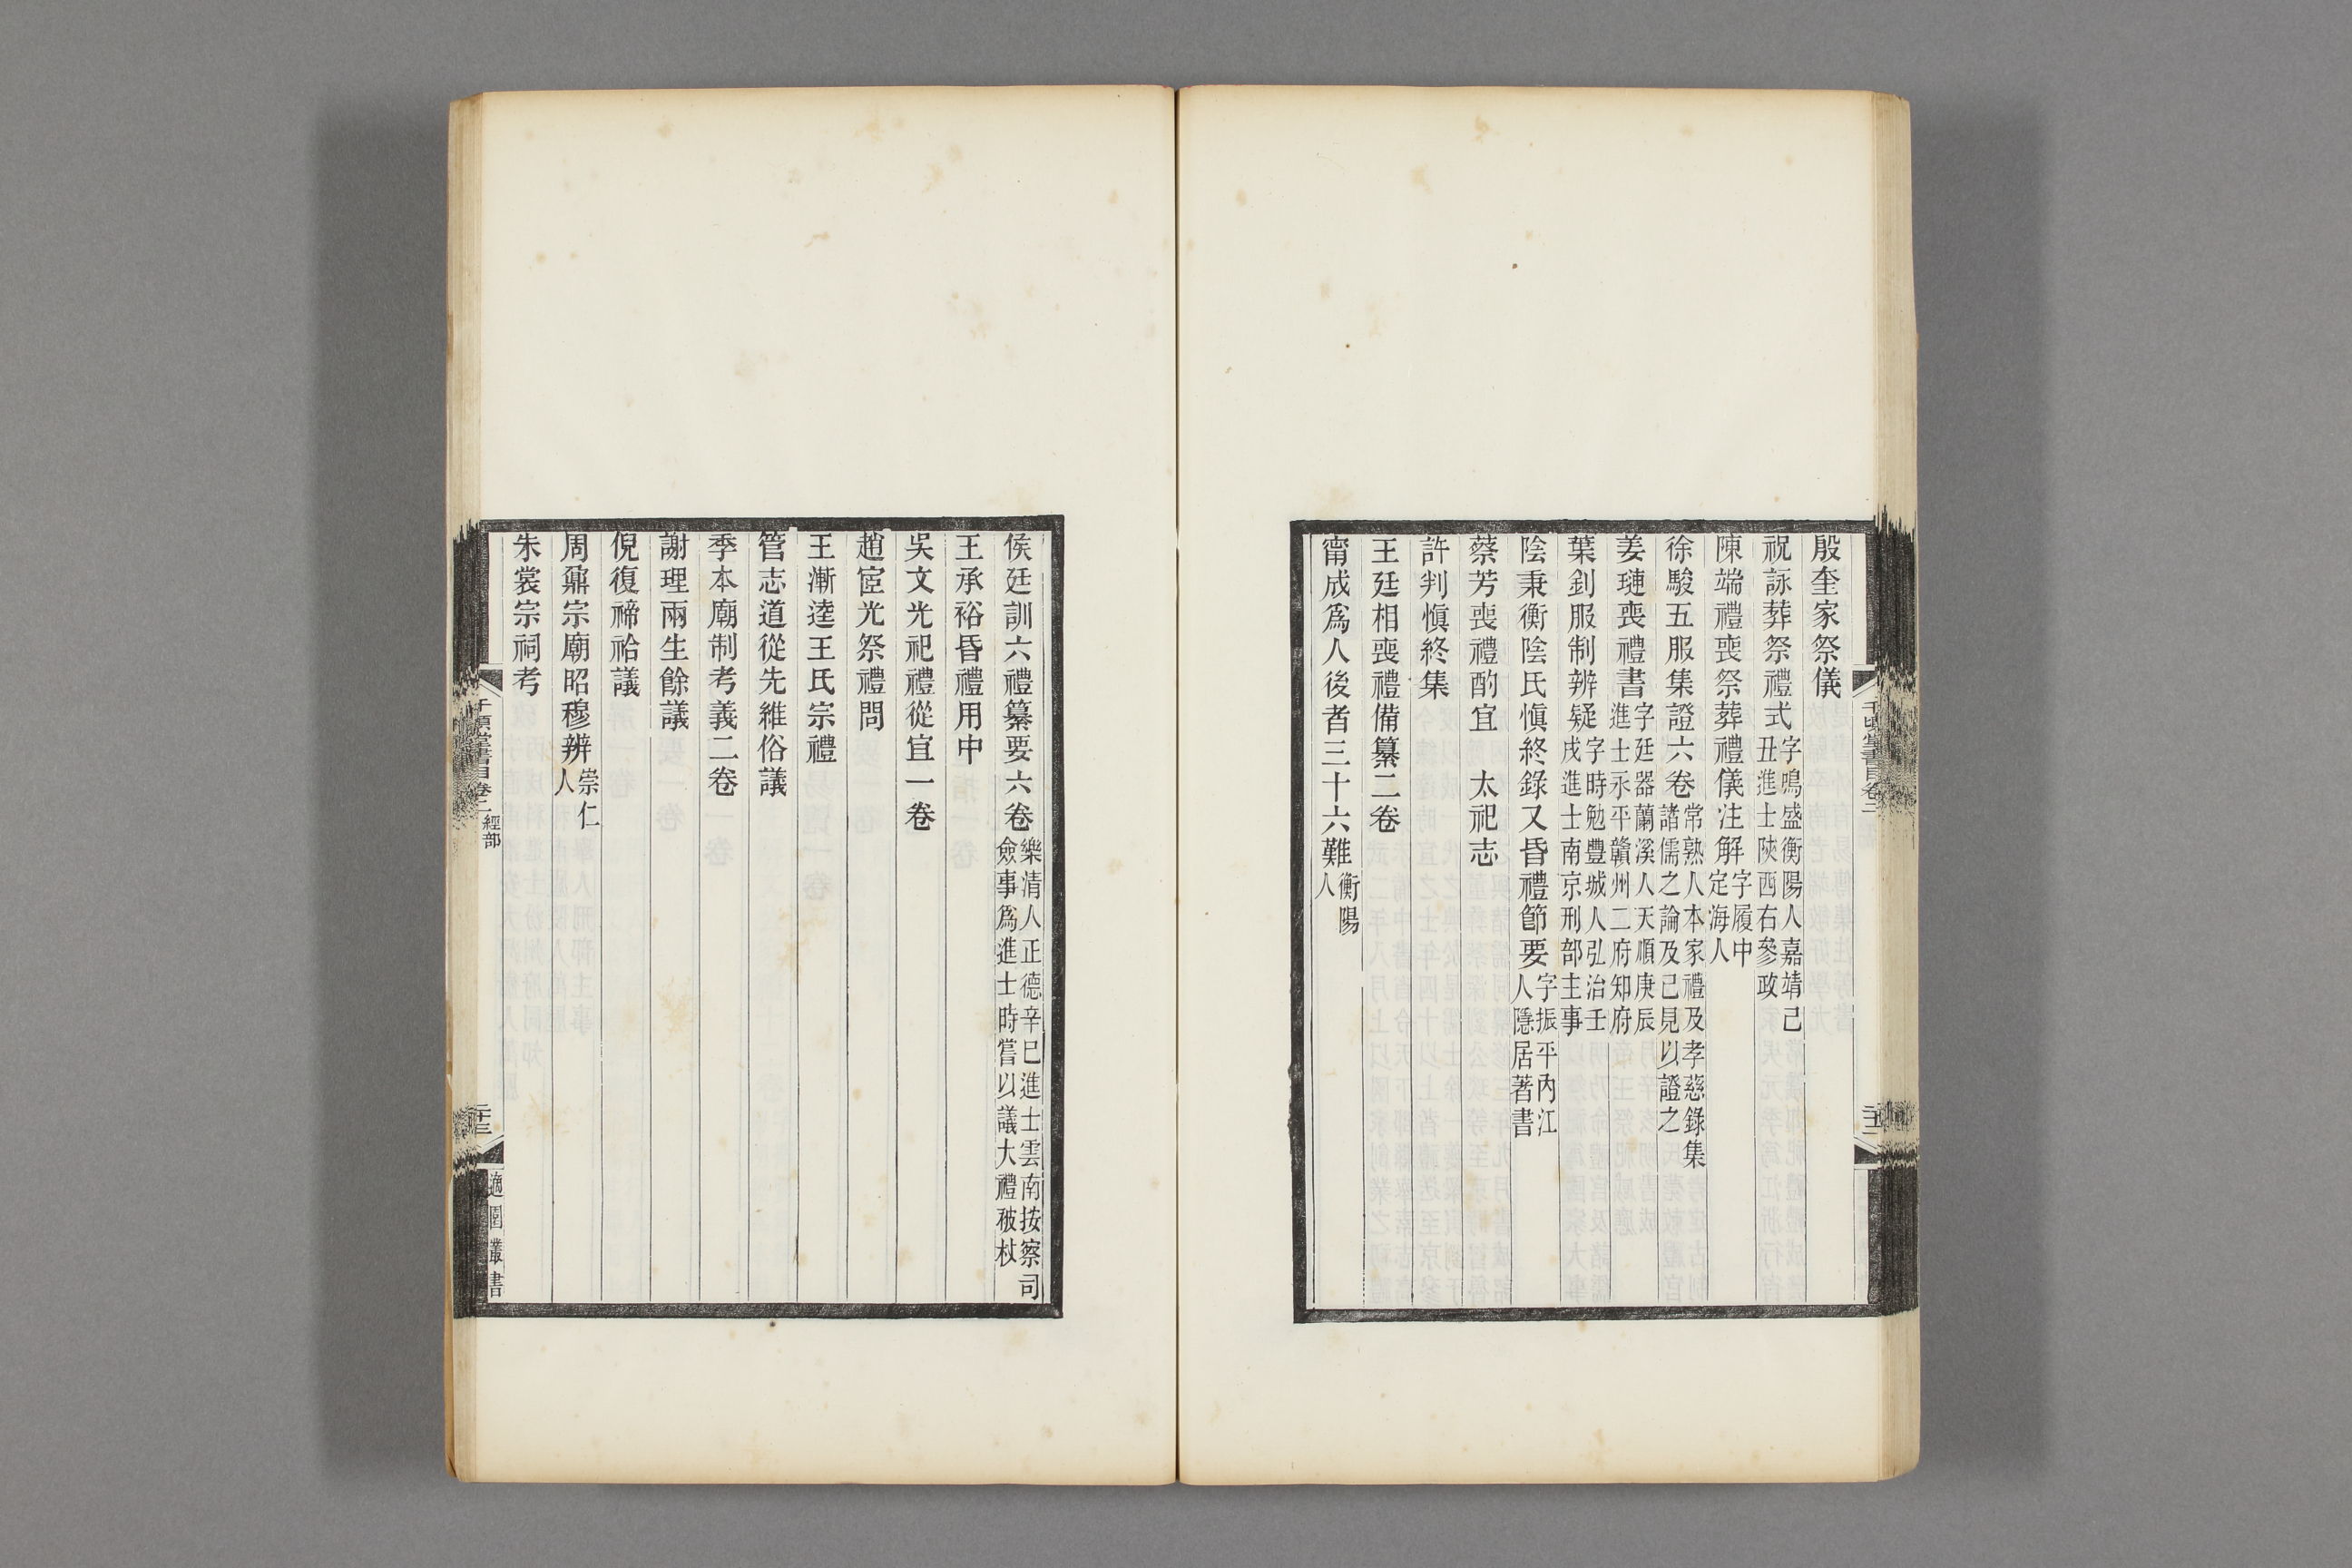 殷奎家祭儀
祝詠葬祭禮式字鳴盛衡陽人嘉靖己丑進士陝西右參政
陳端禮喪祭葬禮儀注解字履中定海人
徐駿五服集證六卷常熟人本家禮及孝慈錄集諸儒之論及己見以證之
姜璉喪禮書字廷器蘭溪人天順庚辰進士永平贛州二府知府
葉釗服制辨疑字時勉豐城人弘治壬戌進士南京刑部主事
陰秉衡陰氏愼終錄又昏禮節要字振平內江人隱居著書
蔡芳喪禮酌宜　太祀志
許判愼終集
王廷相喪禮備纂二卷
甯成爲人後者三十六難衡陽人
侯廷訓六禮纂要六卷樂清人正德辛巳進士雲南按察司僉事爲進士時嘗以議大禮被杖
王承裕昏禮用中
吳文光祀禮從宜一卷
趙宧光祭禮問
王漸逵王氏宗禮
管志道從先維俗議
季本廟制考義二卷
謝理兩生餘議
倪復禘祫議
周鼐宗廟昭穆辨崇仁人
朱裳宗祠考
千頃堂書目卷二 經部
二十三
適園叢書